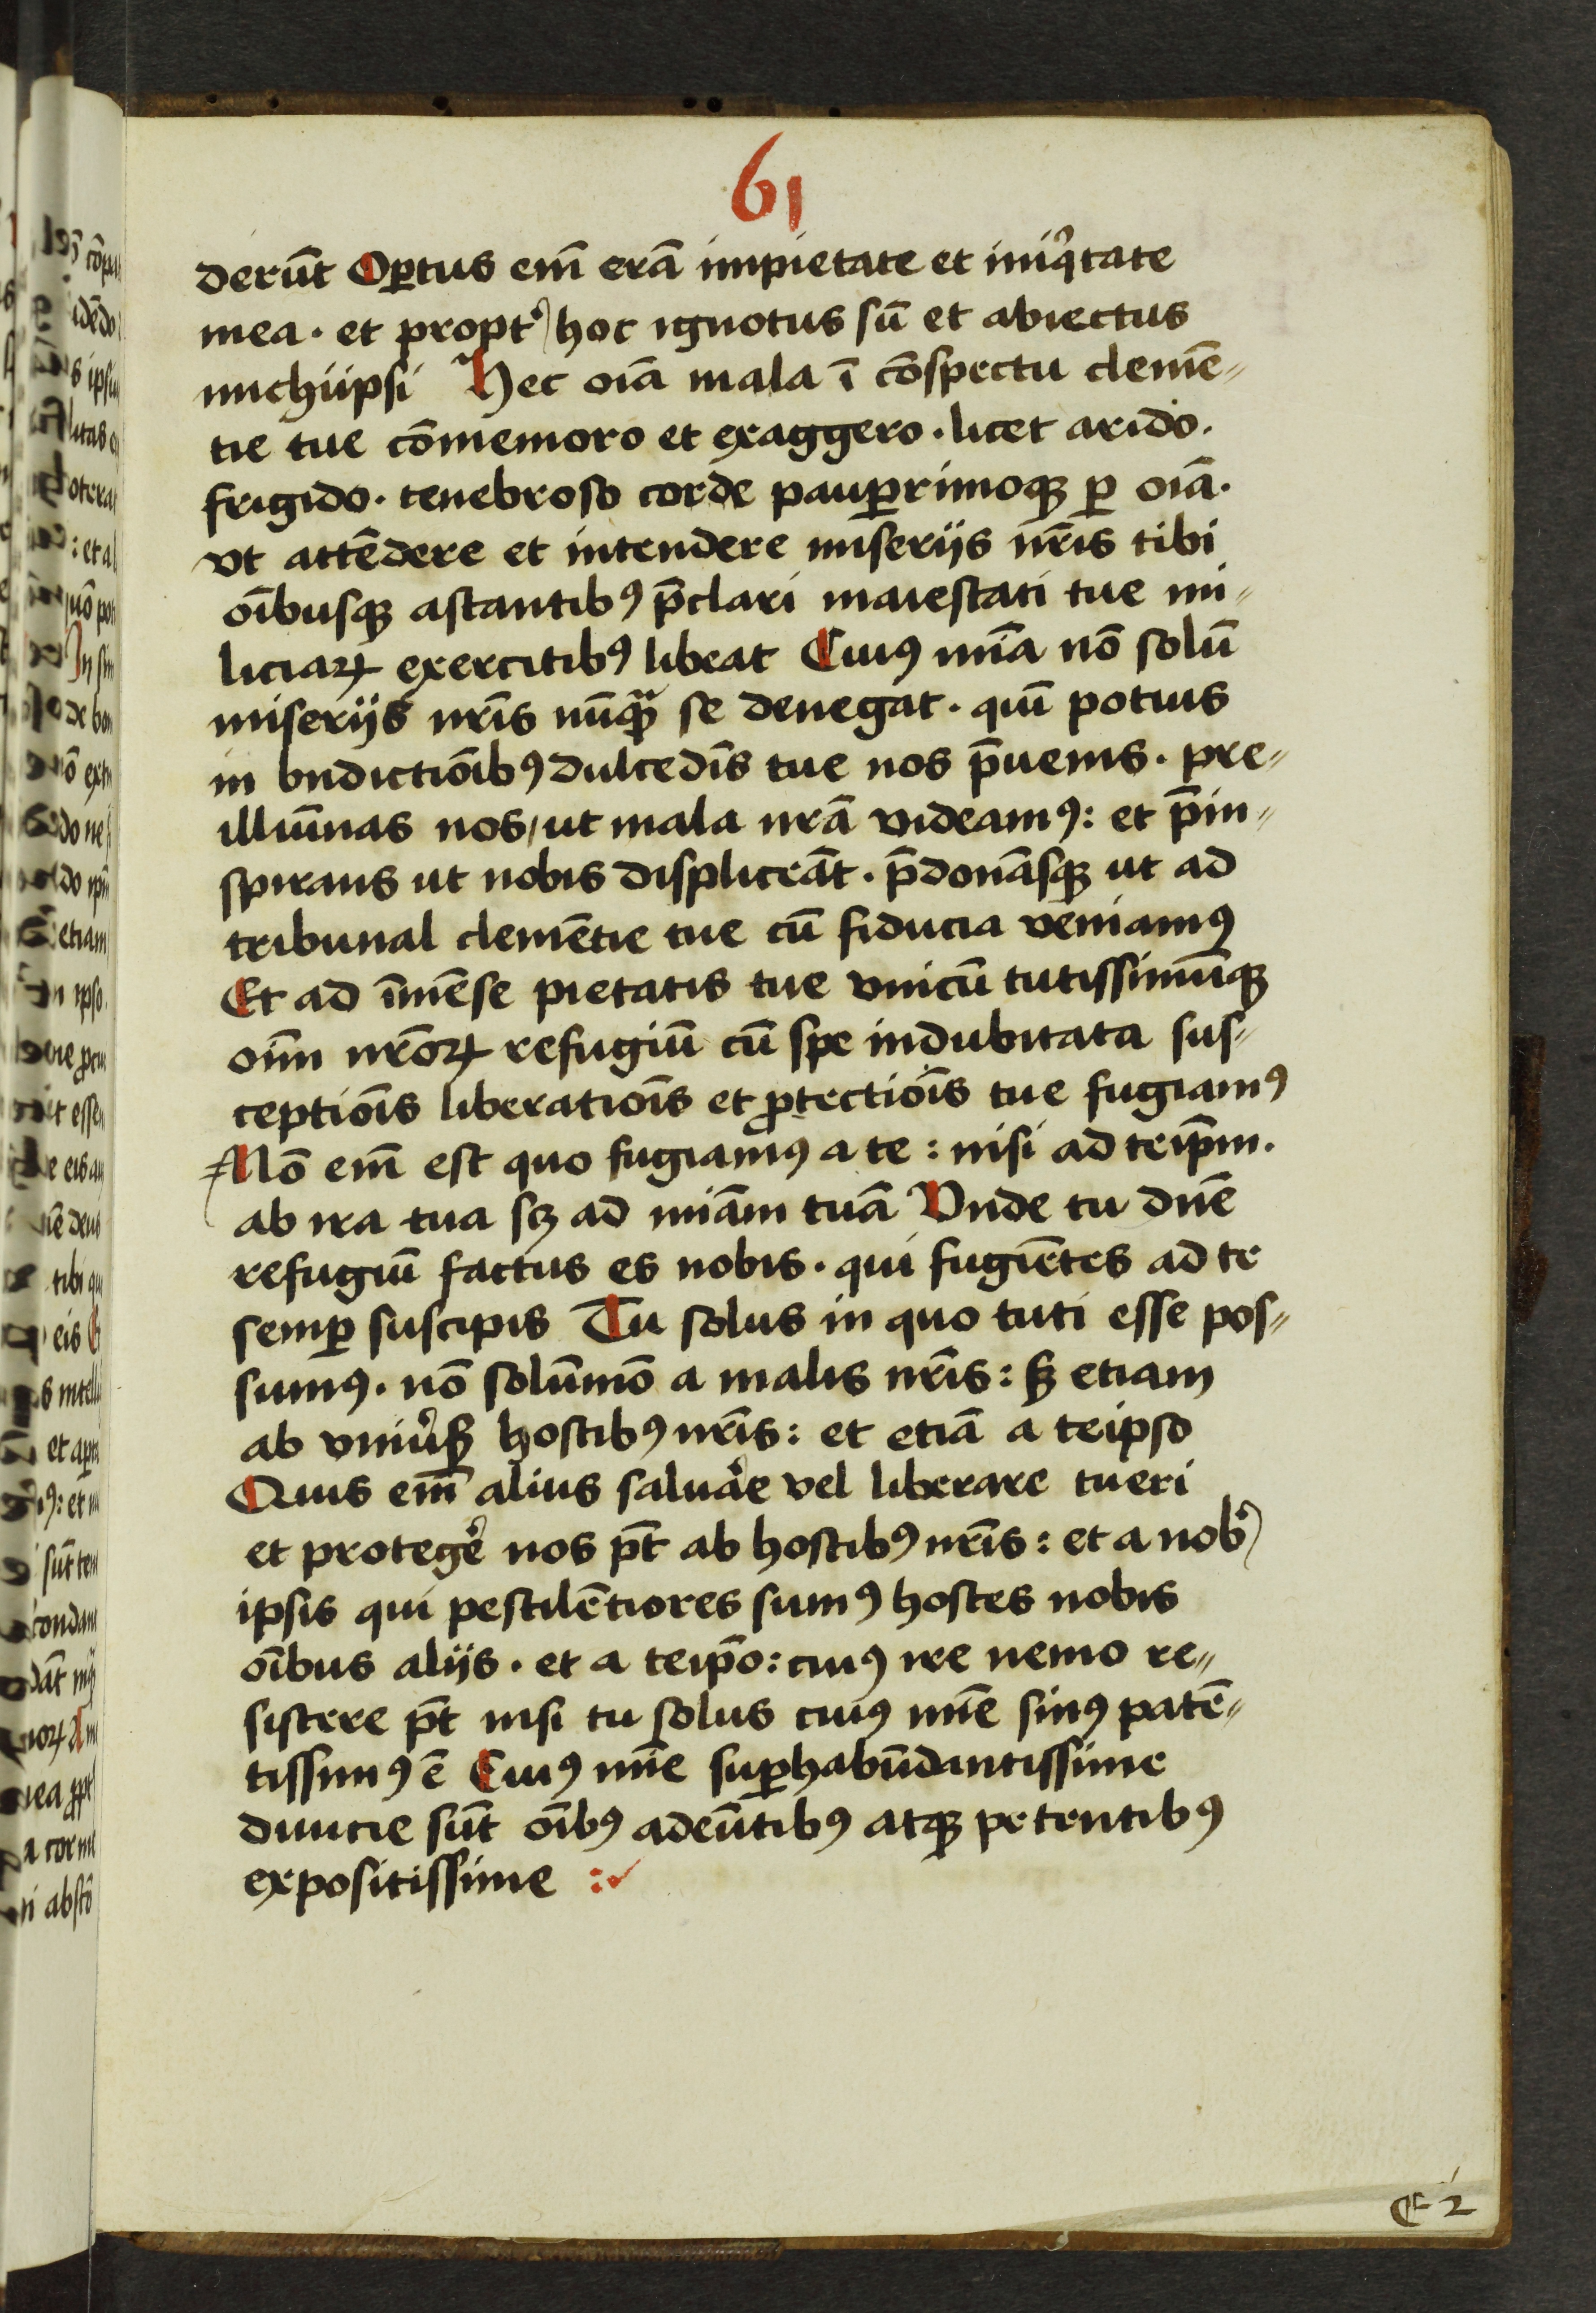 61
derūt Oꝑtus em̄ erā impietate et iniqͥtate
mea · et propt᷒ hoc ignotus sū et abiectus
michiipsi Hec oīa mala ī cōspectu clemē⸗
tie tue cōmemoro et exaggero · licet arido ·
frigido · tenebroso corde pauꝑrimoqꝫ ꝑ oīa ·
vt attēdere et intendere miserijs nr̄is tibi
oībusqꝫ astantibꝰ p̄clari maiestati tue mi⸗
liciaꝝ exercitibꝰ libeat Cuiꝰ mīa nō solū
miserijs nr̄is nūqͣꝫ se denegat · quī potius
in bn̄dictiōibꝰ dulcedīs tue nos p̄uenis · pre⸗
illuīnas nos / ut mala nr̄a videamꝰ : et p̄in⸗
spirans ut nobis displiceāt · p̄donāsqꝫ ut ad
tribunal clemētie tue cū fiducia veniamꝰ
Et ad īmēse pietatis tue vnicū tutissimūqꝫ
oīm nr̄oꝝ refugiū cū spe indubitata sus⸗
ceptiōis liberatiōis et ꝓtectiōis tue fugiamꝰ
Nō em̄ est quo fugiamꝰ a te : nisi ad teip̄m ·
ab ira tua sꝫ ad mīam tuā Vnde tu dn̄e
refugiū factus es nobis · qui fugiētes ad te
semꝑ suscipis Tu solus in quo tuti esse pos⸗
sumꝰ · nō solūmō a malis nr̄is : sꝫ etiam
ab vniu᷒sꝭ hostibꝰ nr̄is : et etiā a teipso
Quis em̄ alius saluāe vel liberare tueri
et proteg᷒e nos pt̄ ab hostibꝰ nr̄is : et a nob᷒
ipsis qui pestilētiores sumꝰ hostes nobis
oībus alijs · et a teip̄o : cuiꝰ ire nemo re⸗
sistere pt̄ nisi tu solus cuiꝰ mīe sinꝰ patē⸗
tissimꝰ ē Cuiꝰ mīe suꝑhabūdantissime
diuicie sūt oībꝰ adeūtibꝰ atqꝫ petentibꝰ
expositissime :
E 2